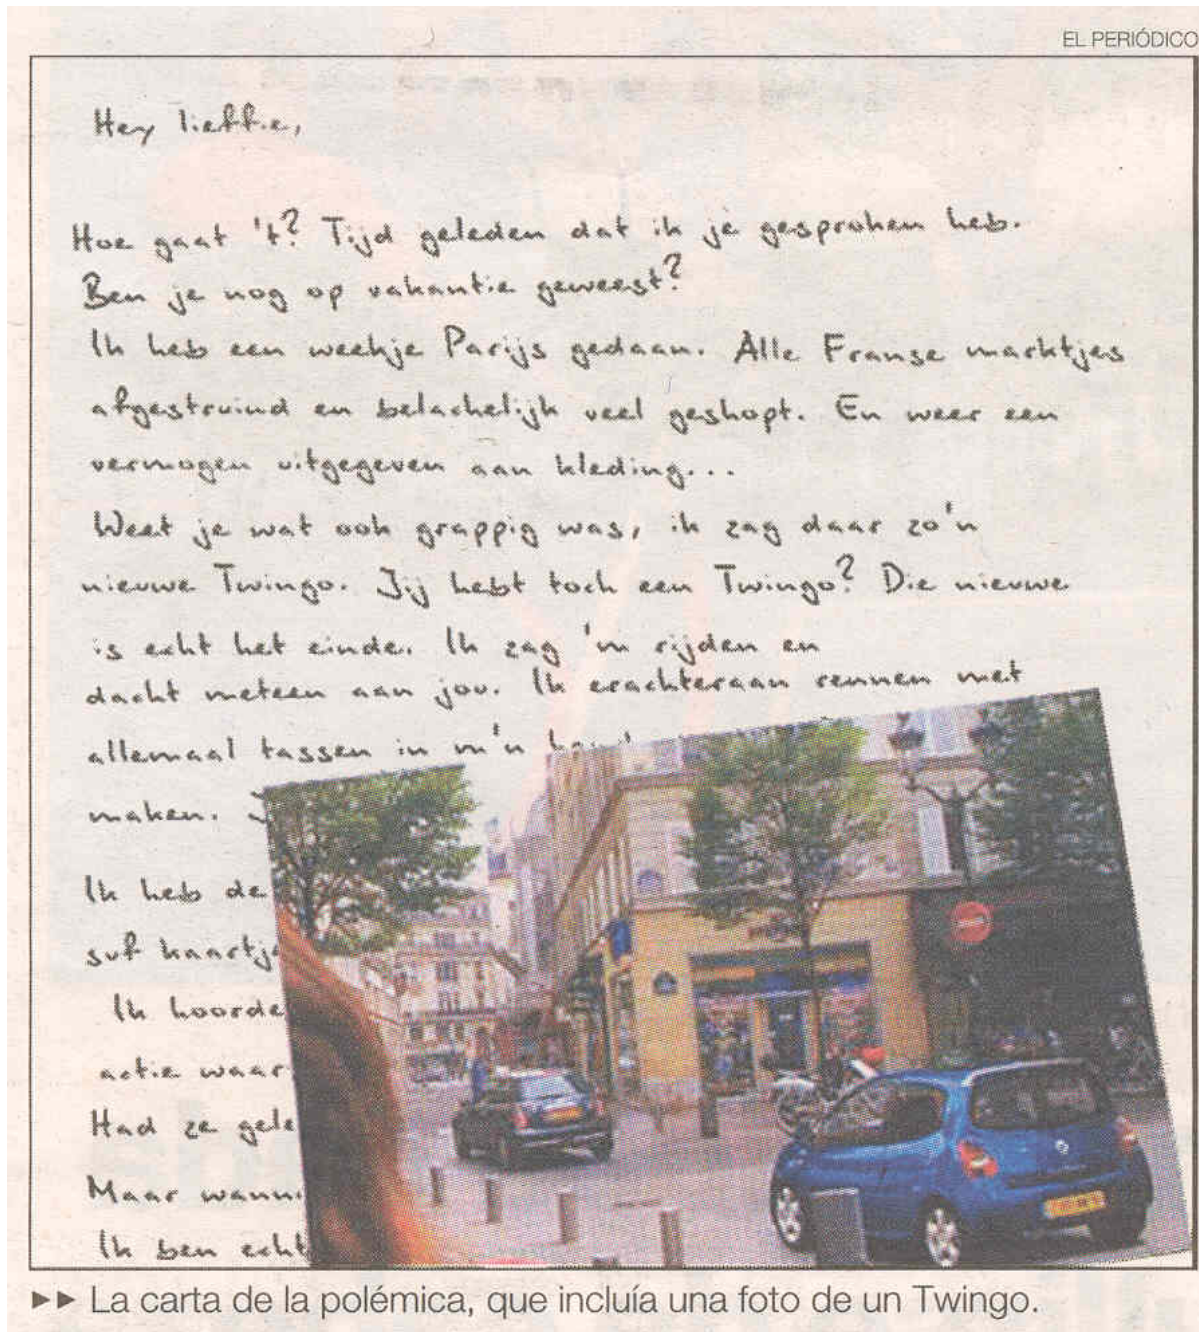 EL PERIÓDICO
Hey lieffie,
Hoe gaat 't? Tijd geleden dat ik je gesproken heb.
Ben je nog op vakantie geweest?
Ik heb een weekje Parijs gedaan. Alle Franse marktjes
afgestruind en belachelijk veel geshopt. En weer een
vermogen uitgegeven aan kleding...
Weet je wat ook grappig was, ik zag daar zo'n
nieuwe Twingo. Jij hebt toch een Twingo? Die nieuwe
is echt het einde. Ik zag 'm rijden en
dacht meteen aan jou. Ik erachteraan rennen met
allemaal tassen in m'n
maken.
Ik heb de
suf kaartje
Ik hoorde
actie waar
Had ze gele
Maar wann
Ik ben echt
►► La carta de la polémica, que incluía una foto de un Twingo.